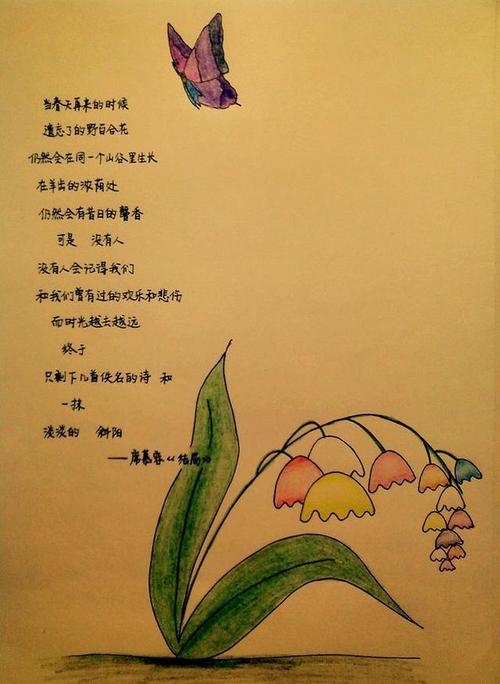 当春天再来的时候
遗忘了的野百合花
仍然会在同一个山谷里生长
在羊齿的浓荫处
仍然会有昔日的馨香
可是 没有人
没有人会记得我们
和我们曾有过的欢乐和悲伤
而时光越去越远
终于
只剩下几首佚名的诗 和
一抹
淡淡的 斜阳
——席慕容《结局》